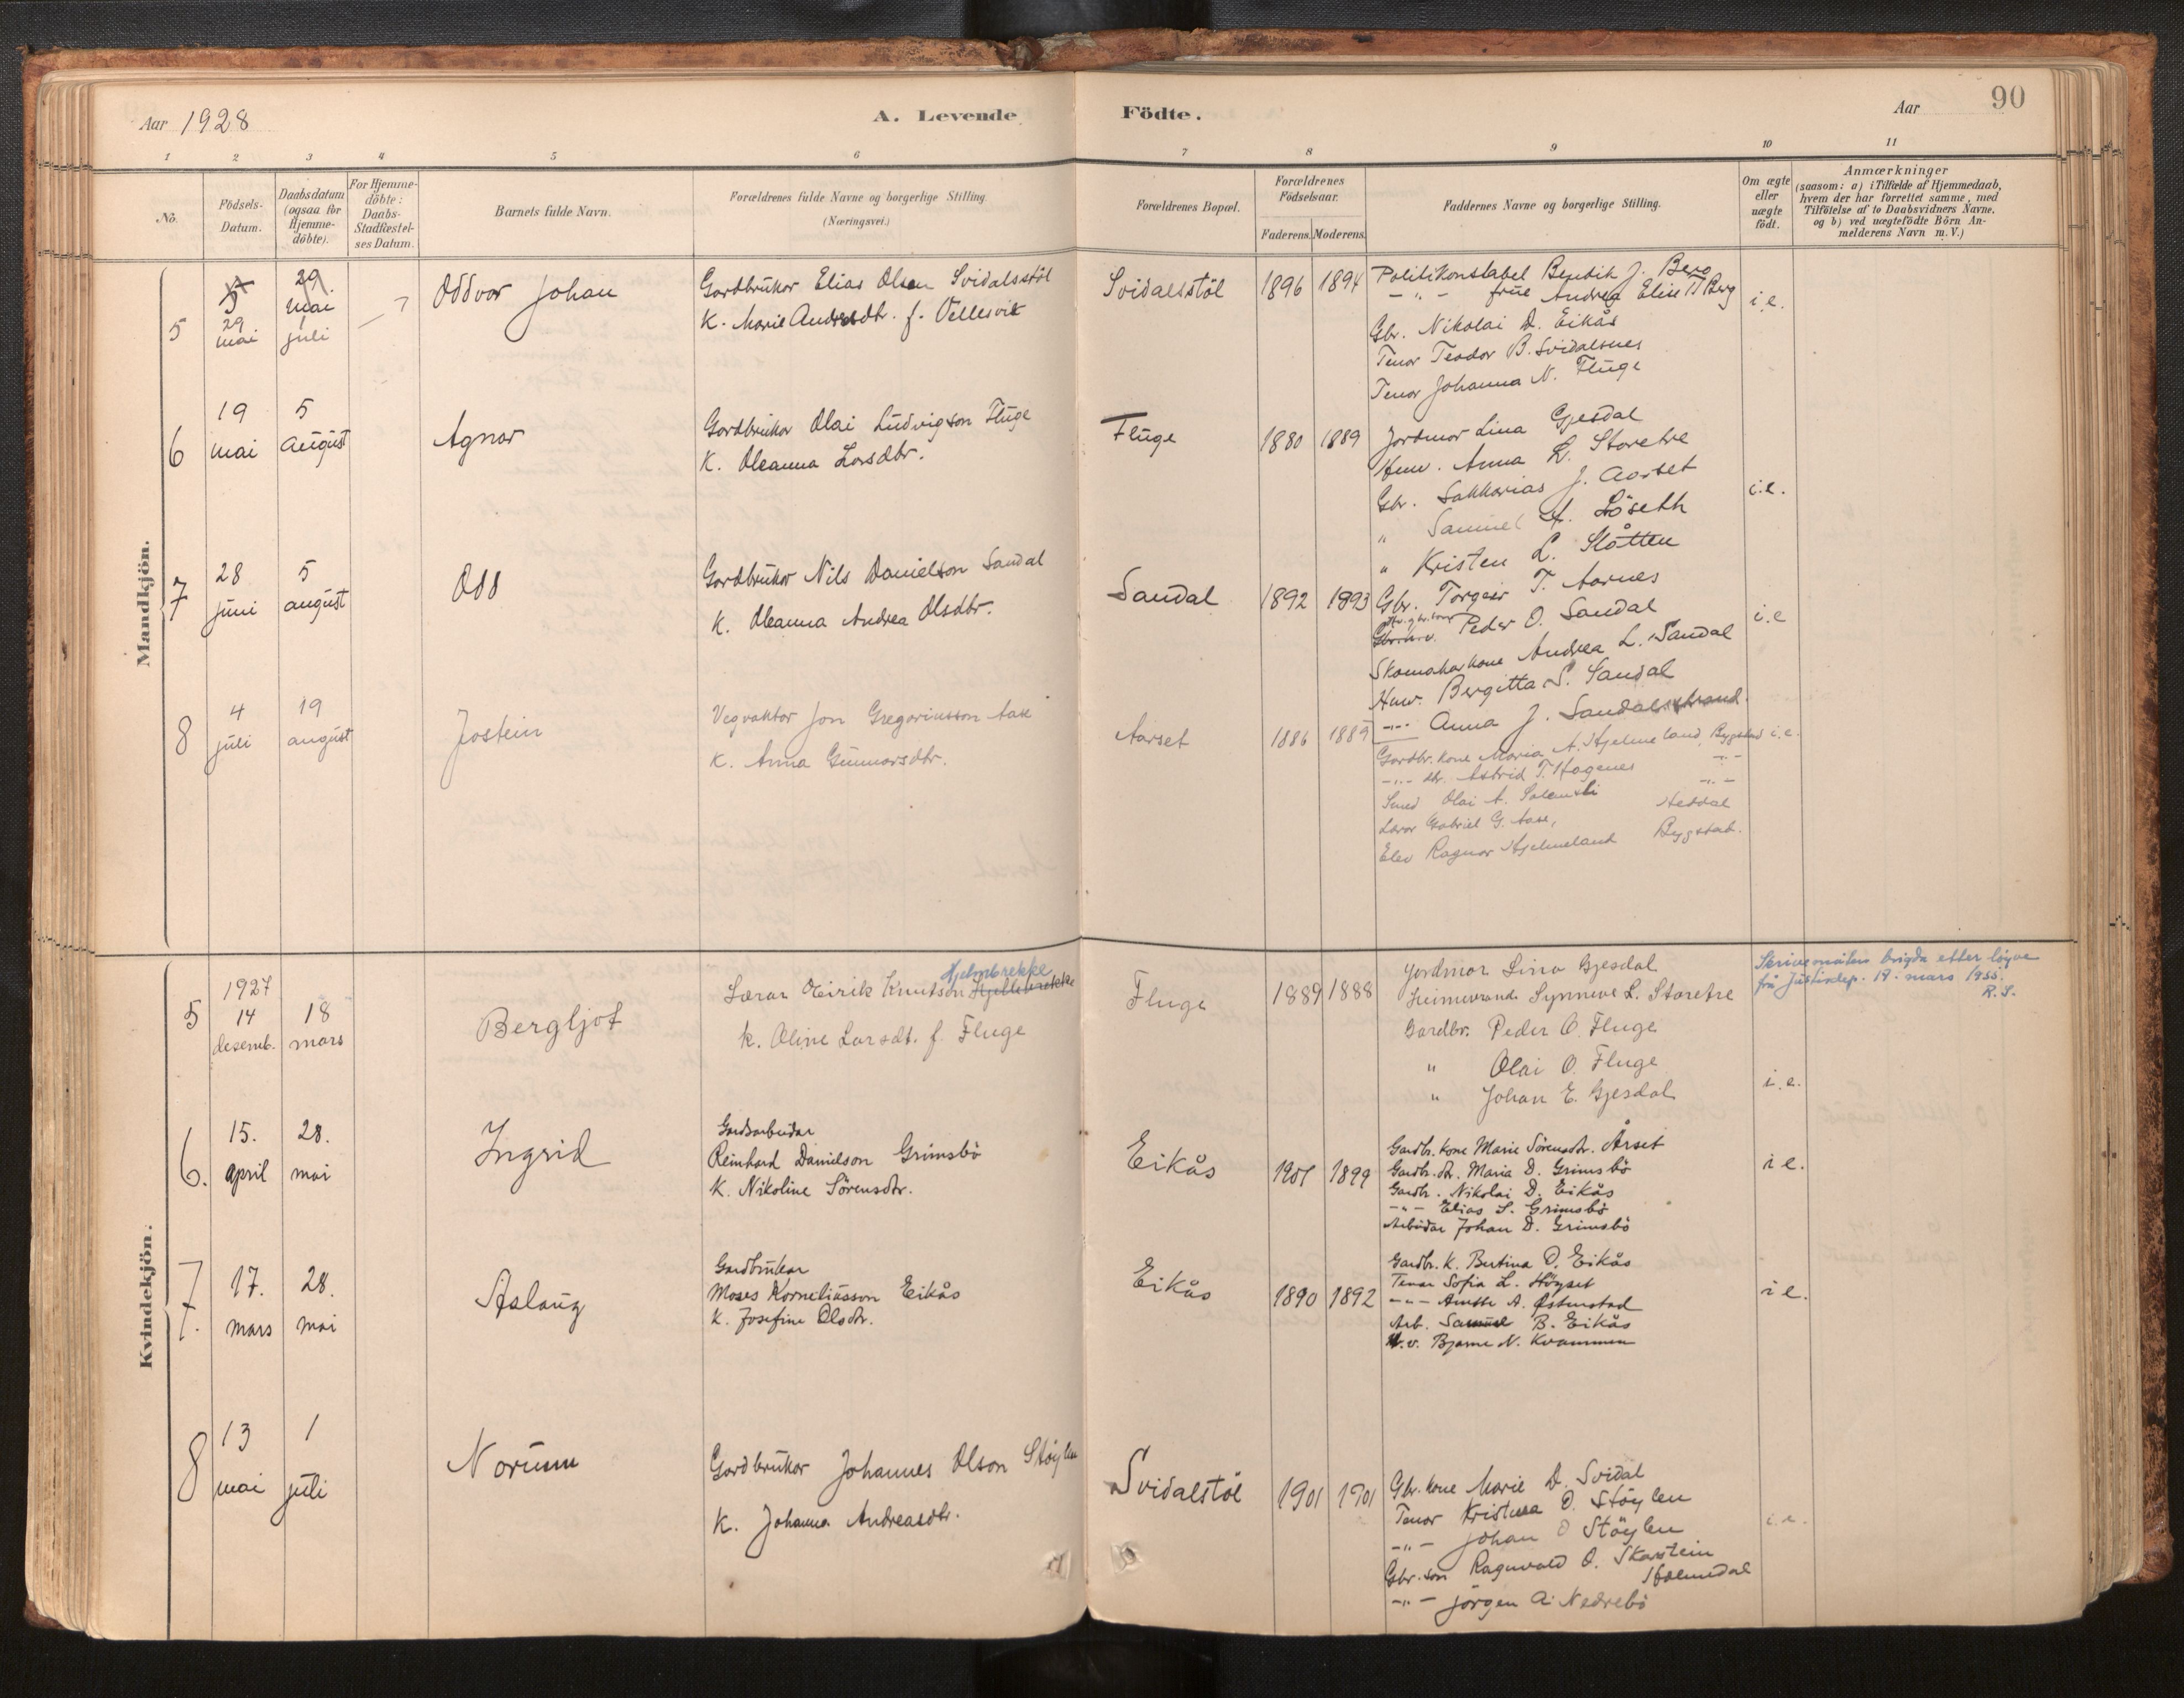 90
Aar 1928
A. Levende Födte.
Aar
1 2 3 4 5 6 7 8 9 10 11
No.
Födsels-Datum.
Daabsdatum (ogsaa for Hjemme-döbte).
For Hjemme-döbte: Daabs-Stadfæstel-ses Datum.
Barnets fulde Navn.
Forældrenes fulde Navne og borgerlige Stilling.
(Næringsvei.)
Forældrenes Bopæl.
Forældrenes Födselsaar.
Faderens. Moderens.
Faddernes Navne og borgerlige Stilling.
Om ægte eller uægte födt.
Anmærkninger
(saasom: a) i Tilfælde af Hjemmedaab,
hvem der har forrettet samme, med
Tilföielse af to Daabsvidners Navne.
og b) ved uægtefödte Börn An-
melderens Navn m.V.)
Mandkjön.
5
29 mai
29. mai
juli
Oddvar Johan
Gardbrukar Elias Olsen Svidalsstöl
K. Marie Andreasdtr. f. Vellesvik
Svidalsstöl
1896 1894
Politikonstabel Bendik J. Berg
-"- frue Andrea Elise T. Berg
Gbr. Nikolai D. Eikås
Tenar Teodor B. Svidalsnes
Tenar Johanna N. Fluge
i.e.
6
19 mai
5 august
Agnar
Gardbrukar Olai Ludvigson Fluge
K. Oleanna Larsdtr.
Fluge
1880 1889
Jordmor Lina Gjesdal
Huv. Anna L. Storetre
Gbr. Sakkarias J. Aarset
" Samuel A. Löseth
" Kristen L. Slåtten
i.e.
7
28 juni
5 august
Odd
Gardbrukar Nils Danielson Sandal
K. Oleanna Andrea Olsdtr.
Sandal
1892 1893
Gbr. Torgeir T. Aarnes
Peder O. Sandal
Skomakarkone Andrea L. Sandal
Huv. Bergitta S. Sandal
-"- Anna J. Sandalsstrand.
i.e
8
4 juli
19 august
Jostein
Vegvaktar Jon Gregoriusson Aase
K. Anna Gunnarsdtr.
Aarset
1886 1889
Gardbr. kone Maria A. Hjelmeland, Bygstad
-"- dtr. Astrid T. Hagenes -"-
Smed Olai A. Solenski -"-
Lærar Gabriel G. Aase, Heddal
Elev Ragnar Hjelmeland Bygstad.
i.e.
Kvindekjön.
5
1927
14 desemb.
18 mars
Bergljot
Hjelmbrekke
Lærar Eirik Knutson Hjellebrekke
k. Oline Larsdt. f. Fluge
Fluge
1889 1888
Jordmor Lina Gjesdal
Heimeverand. Synneve L. Storetre
Gardbr. Peder O. Fluge
" Olai O. Fluge
" Johan E. Gjesdal
i.e.
Skrivemåten brigda etter löyve
frå Justisdep. 17. mars 1955.
R.S.
6.
15. april
28. mai
Ingrid
Gardsarbeidar
Reinhard Danielson Grimsbö
K. Nikoline Sörensdtr.
Eikås
1901 1899
Gardbr. kone Marie Sörensdtr. Årset
Gardbr. dtr. Maria D. Grimsbö
Gardbr. Nikolai D. Eikås
-"- Elias S. Grimsbö
Arbeidar Johan D. Grimsbö
i e.
7.
17. mars
28. mai
Aslaug
Gardbrukar
Moses Korneliusson Eikås
K. Josefine Olsdtr.
Eikås
1890 1892
Gardbr. K. Bertina O. Eikås
Tenar Sofia L. Högset
-"- Anette A. Östenstad
Arb. Samuel B. Eikås
H.v. Bjarne N. Kvammen
i e.
8
13 mai
1 juli
Norunn
Gardbrukar Johannes Olson Stöylen
K. Johanna Andreasdtr.
Svidalstöl
1901 1901
Gbr. kone Marie D. Svidal
Tenar Kristina O. Stöylen
-"- Johan O Stöylen
Gbr. son Ragnvald O. Skarstein
Holmedal
-"- Jörgen A. Nedrebö
i.e.